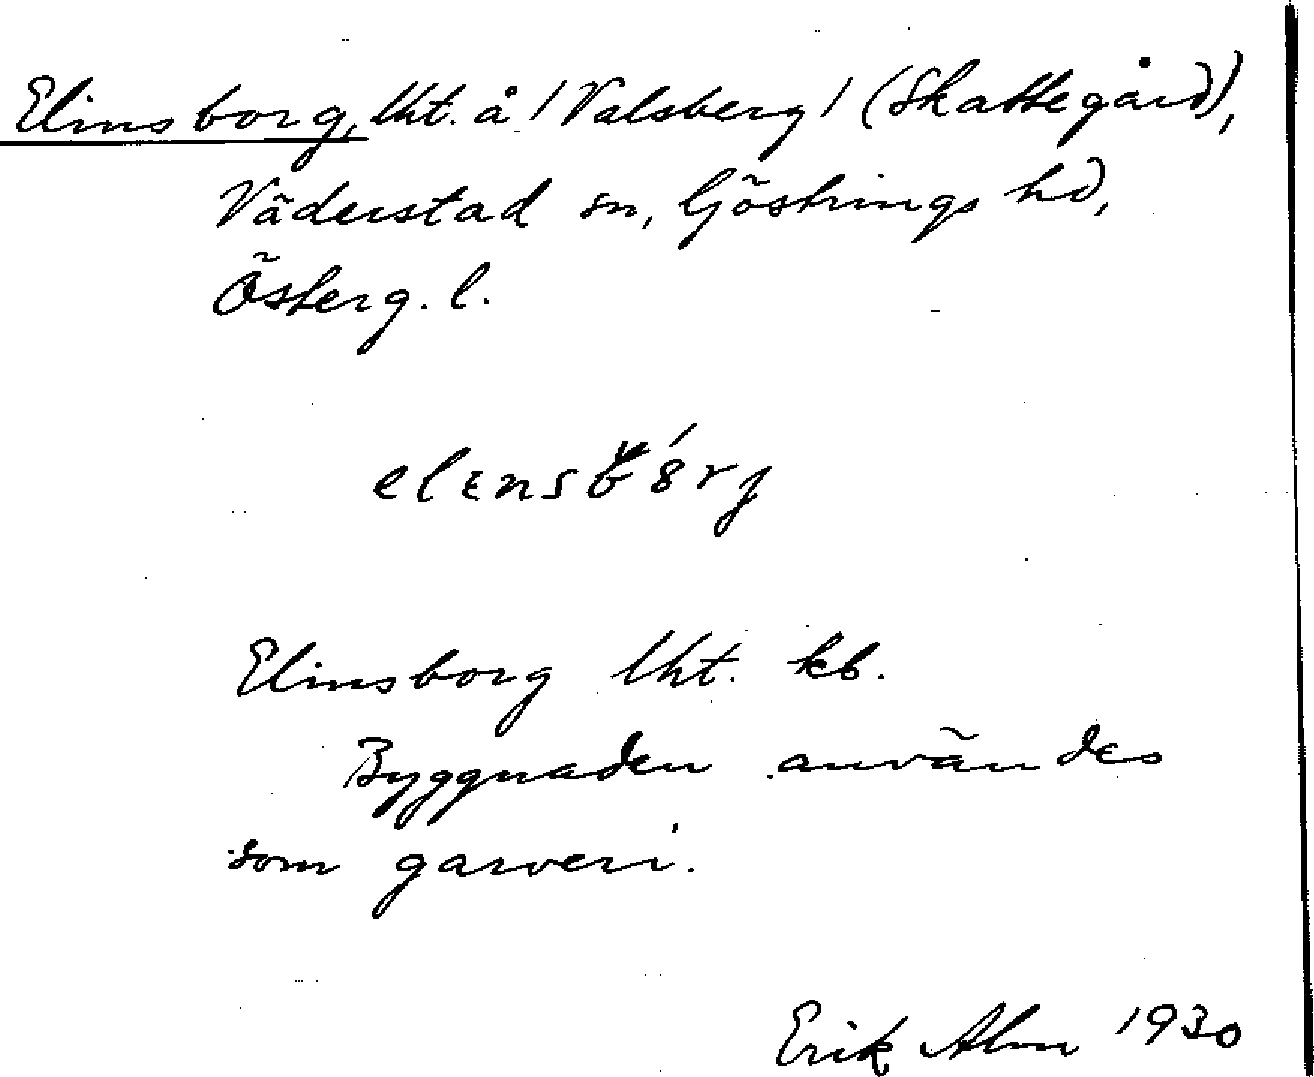 Elinsborg, lht. å /Valsberg/ (Skattegård),
Väderstad sn, Göstrings hd,
Österg. l.
Elinsborg lht. kb.
Byggnaden användes
som garveri.
Erik Alm 1930